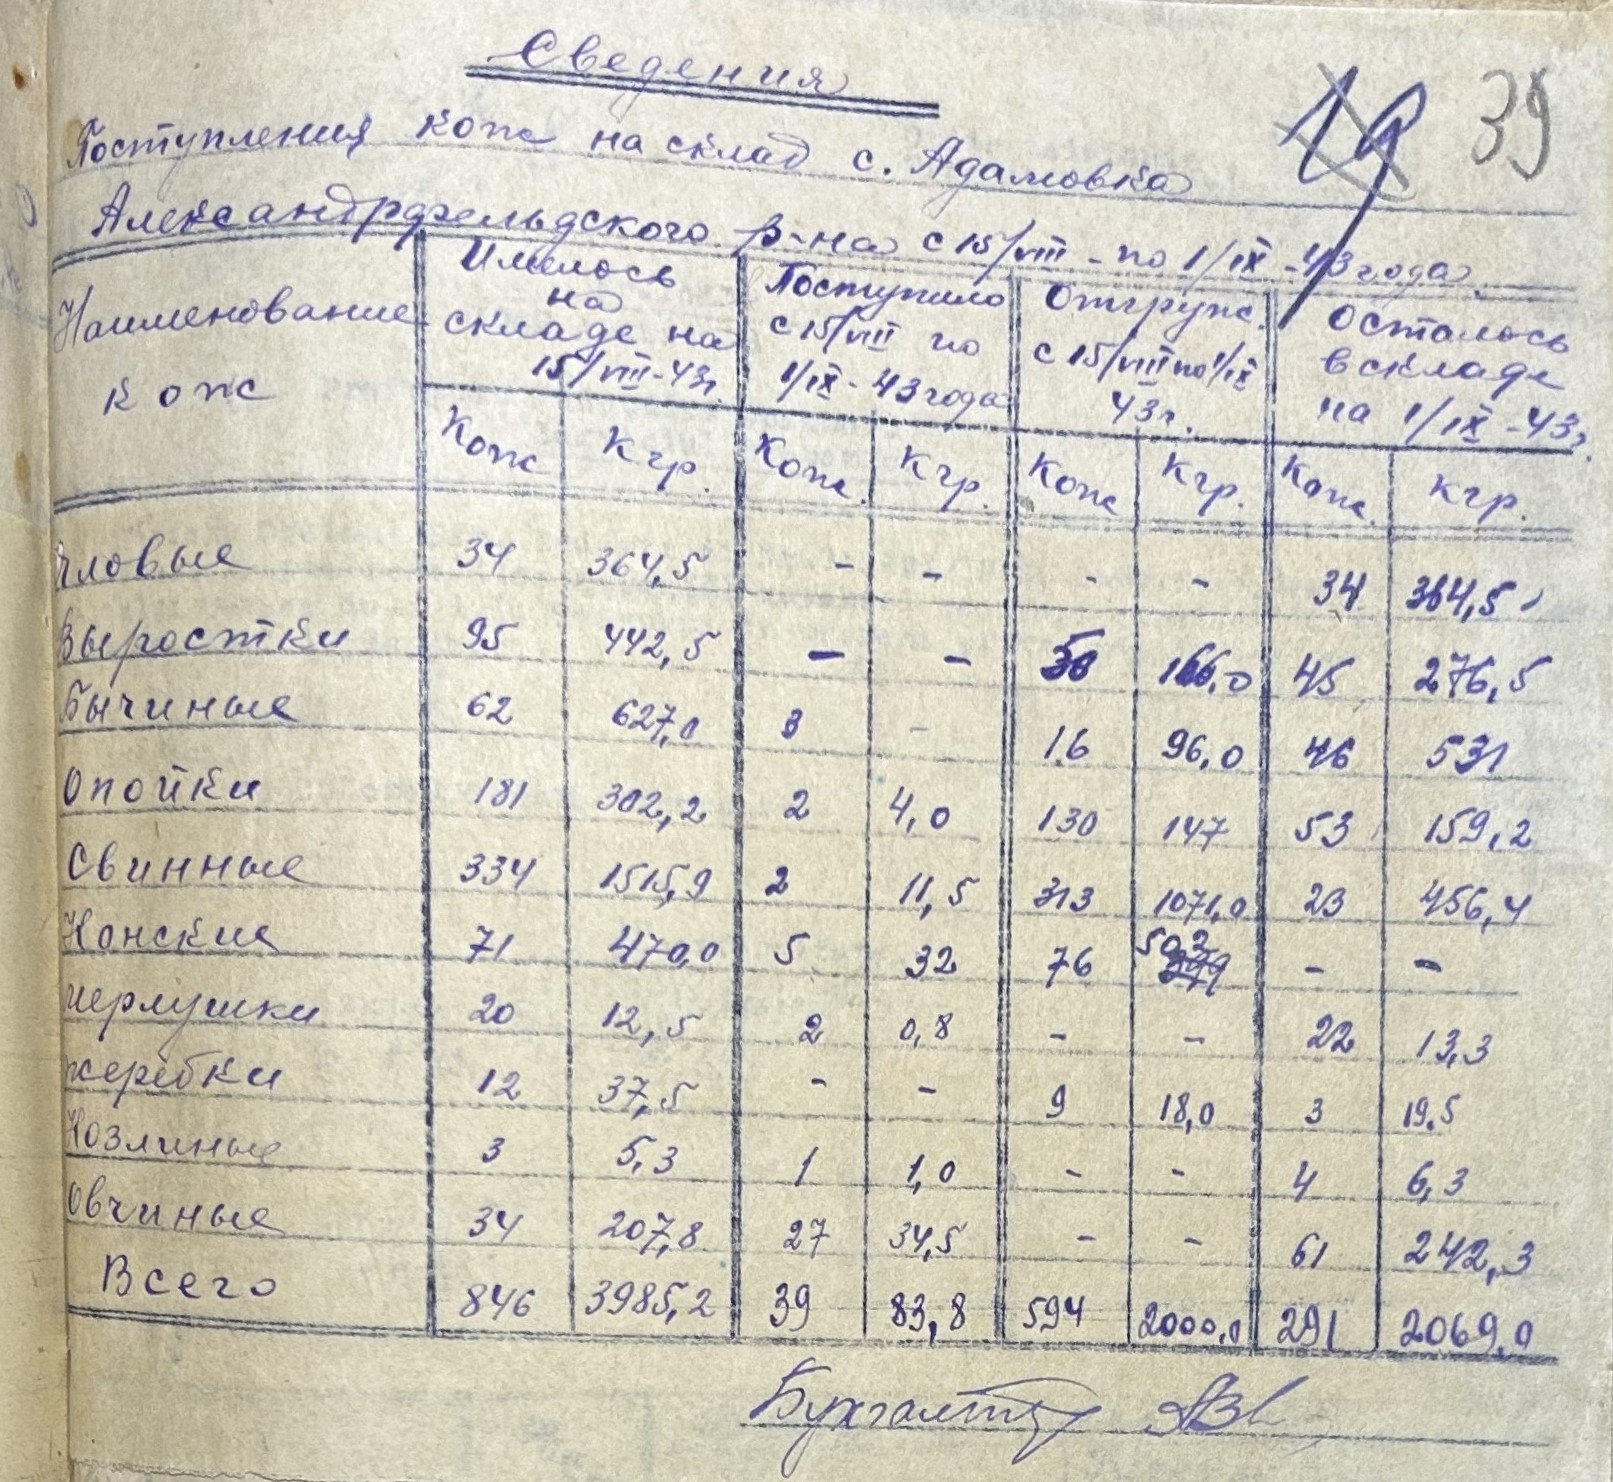 Сведения
19 39
Поступления кож на склад с. Адамовка
Александрфельдского р-на с 15/VIII - по 1/IX - 43 года.
Наименование кож | Имелось на складе на 15/VIII-43г. | Поступило с 15/VIII по 1/IX - 43 года | Отгруж. с 15/VIII по 1/IX 43г. | Осталось в складе на 1/IX-43г.
Кож | Кгр. | Кож. | Кгр. | Кож | Кгр. | Кож. | Кгр.
яловые | 34 | 364,5 | - | - | - | - | 34 | 364,5
Выростки | 95 | 442,5 | - | - | 50 | 166,0 | 45 | 276,5
Бычиные | 62 | 627,0 | | - | 16 | 96,0 | 46 | 531
Опойки | 181 | 302,2 | 2 | 4,0 | 130 | 147 | 53 | 159,2
Свинные | 334 | 1515,9 | 2 | 11,5 | 313 | 1071,0 | 23 | 456,4
Конские | 71 | 470,0 | 5 | 32 | 76 | 502 | - | -
мерлушки | 20 | 12,5 | 2 | 0,8 | - | - | 22 | 13,3
жеребки | 12 | 37,5 | - | - | 9 | 18,0 | 3 | 19,5
Козлиные | 3 | 5,3 | 1 | 1,0 | - | - | 4 | 6,3
Овчиные | 34 | 207,8 | 27 | 34,5 | - | - | 61 | 242,3
Всего | 846 | 3985,2 | 39 | 83,8 | 594 | 2000,0 | 291 | 2069,0
Бухгалтер